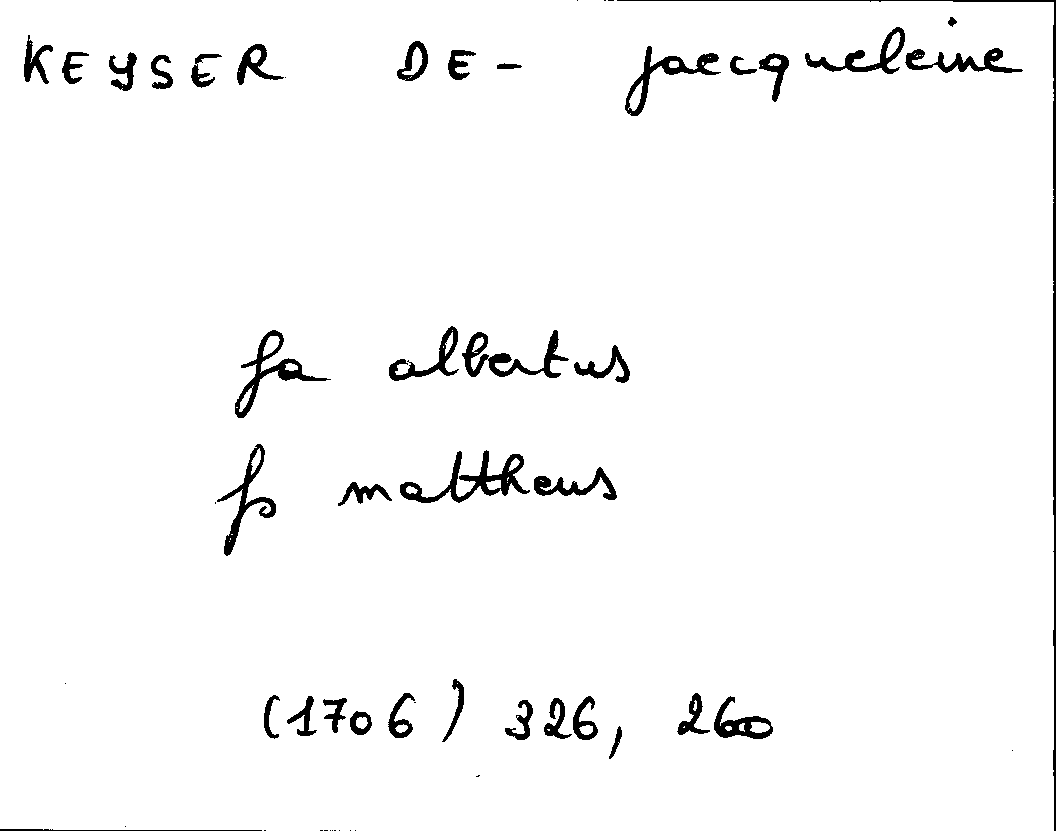 KEYSER DE- Jaecqueleine
fa albertus
fs mattheus
(1706) 326, 260